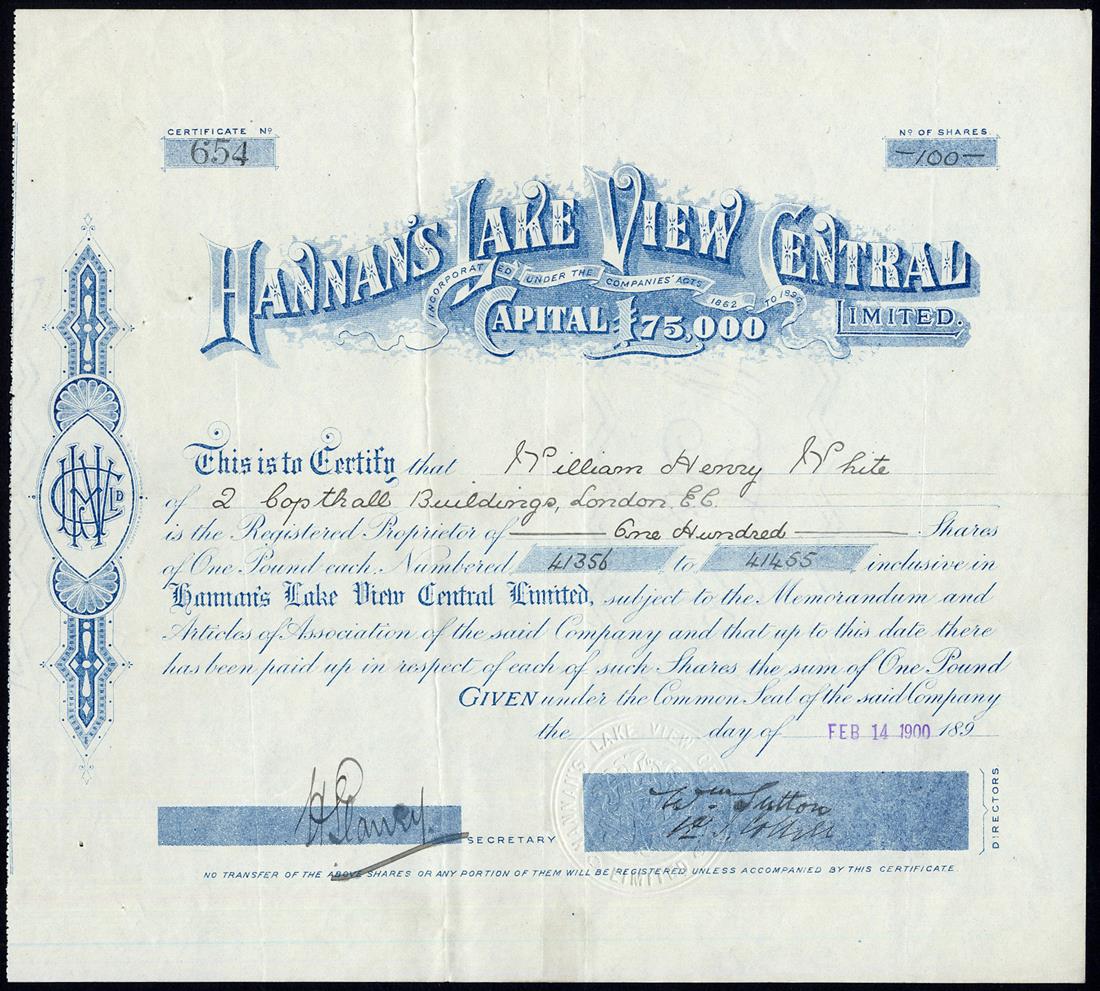 CERTIFICATE No
654
No OF SHARES
-100-
HANNAN'S LAKE VIEW CENTRAL
INCORPORATED UNDER THE COMPANIES' ACTS 1862 TO 1890
CAPITAL £75,000 LIMITED.
This is to Certify that William Henry White
of 2 Copthall Buildings, London E.C.
is the Registered Proprietor of One Hundred Shares
of One Pound each, Numbered 41356 to 41455 inclusive in
Hannan's Lake View Central Limited, subject to the Memorandum and
Articles of Association of the said Company and that up to this date there
has been paid up in respect of each of such Shares the sum of One Pound
GIVEN under the Common Seal of the said Company
the day of FEB 14 1900 189
HANNAN'S LAKE VIEW
LIMITED
SECRETARY
Wm Sutton
DIRECTORS
NO TRANSFER OF THE ABOVE SHARES OR ANY PORTION OF THEM WILL BE REGISTERED UNLESS ACCOMPANIED BY THIS CERTIFICATE.